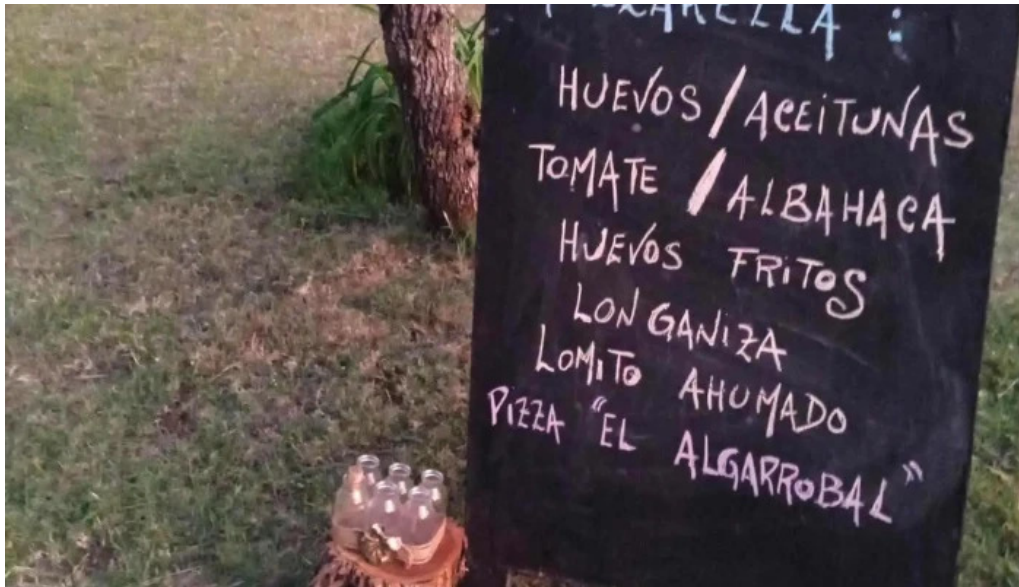 HUEVOS / ACEITUNAS
TOMATE / ALBAHACA
HUEVOS FRITOS
LONGANIZA
LOMITO AHUMADO
PIZZA "EL ALGARROBAL"